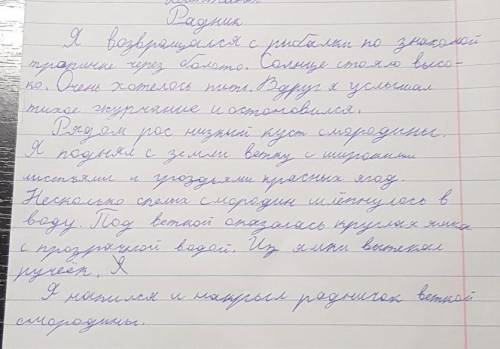 Радник
Я возвращался с рыбалки по знакомой
тропинке через болото. Солнце стояло высо-
ко. Очень хотелось пить. Вдруг я услышал
тихое журчание и остановился.
Рядом рос низкий куст смородины.
Я поднял с земли ветку с широкими
листьями и гроздьями красных ягод.
Несколько спелых смородин шлёпнулось в
воду. Под веткой оказалась круглая ямка
с прозрачной водой. Из ямки вытекал
ручеёк. Я
Я напился и накрыл радничок веткой
смородины.